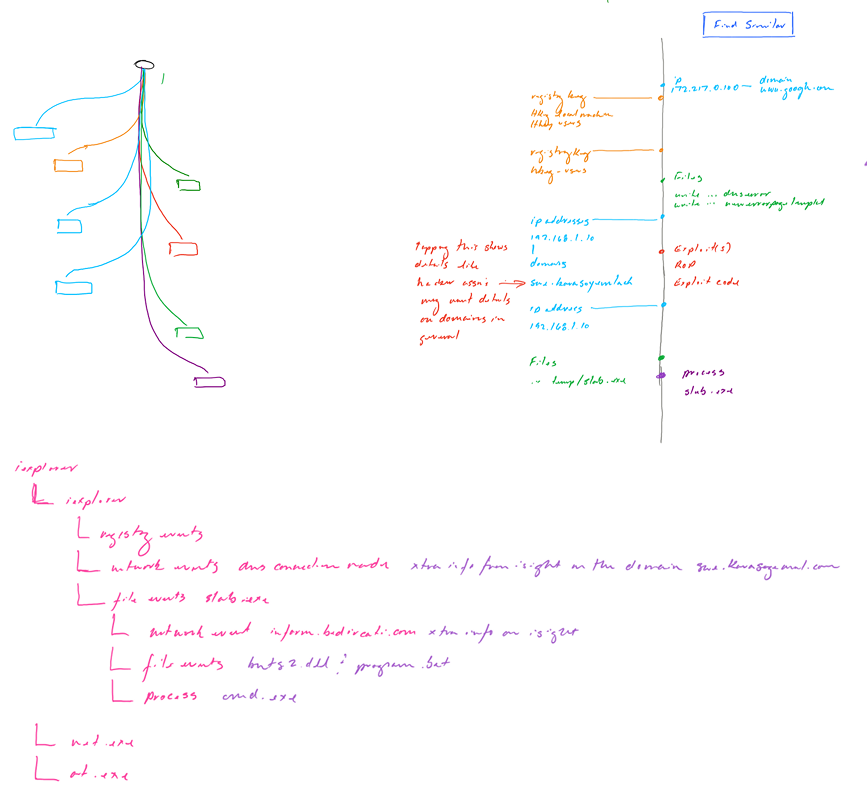 Find Similar
ip
172.217.0.100 — domain
www.google.com
registry key
Hkey local machine
Hkey users
registry key
hkey-users
Files
write ... dnserror
write ...
ip addresses
192.168.1.10
domains
Tapping this shows
details like
hacker assn's
may want details
on domains in
general
Exploit(s)
ROP
Exploit code
ip address
192.168.1.10
Files
.. temp/slab.exe
process
slab.exe
iexplorer
iexplorer
registry events
network events dns connection made xtra info from isight on the domain
file events slab.exe
network event xtra info on isight
file events buts2.dll ; program.bat
process cmd.exe
net.exe
at.exe